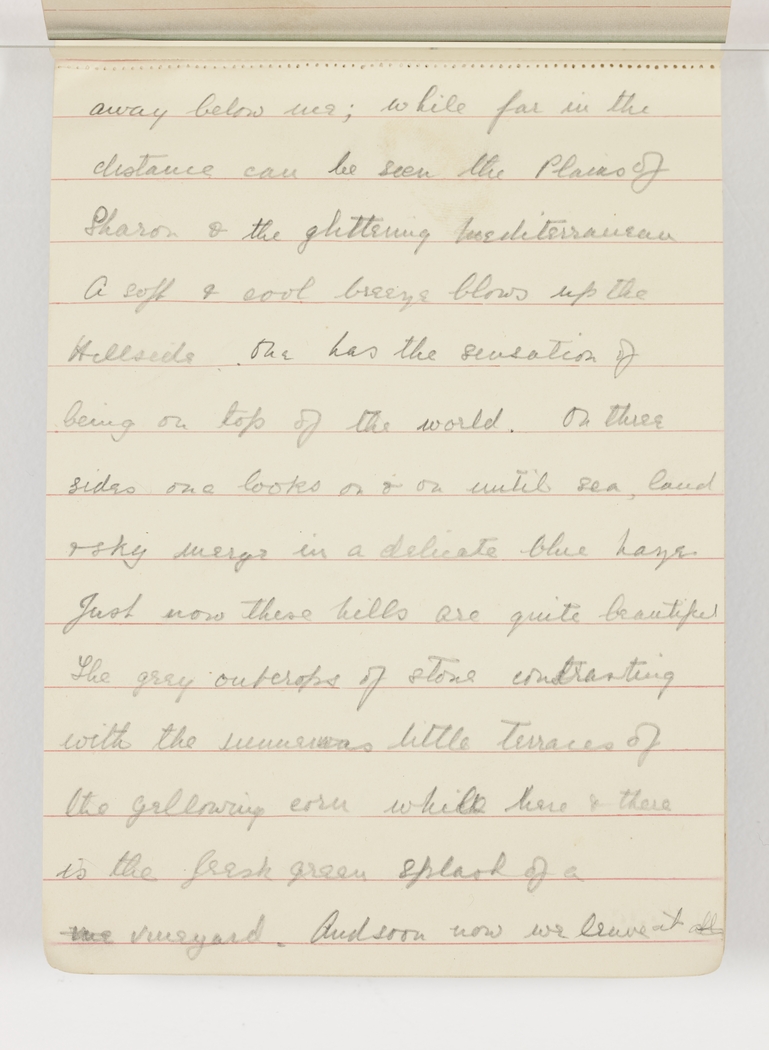 away below me; while far in the
distance can be seen the Plains of
Sharon & the glittering Mediterranean
A soft & cool breeze blows up the
Hillside. One has the sensation of
being on top of the world. On three
sides one looks on & on until sea, land
& sky merge in a delicate blue haze.
Just now these hills are quite beautiful
The grey outcrops of stone contrasting
with the numerous little terraces of
the yellowing corn while here & there
is the fresh green splash of a
vineyard. And soon now we leave it all